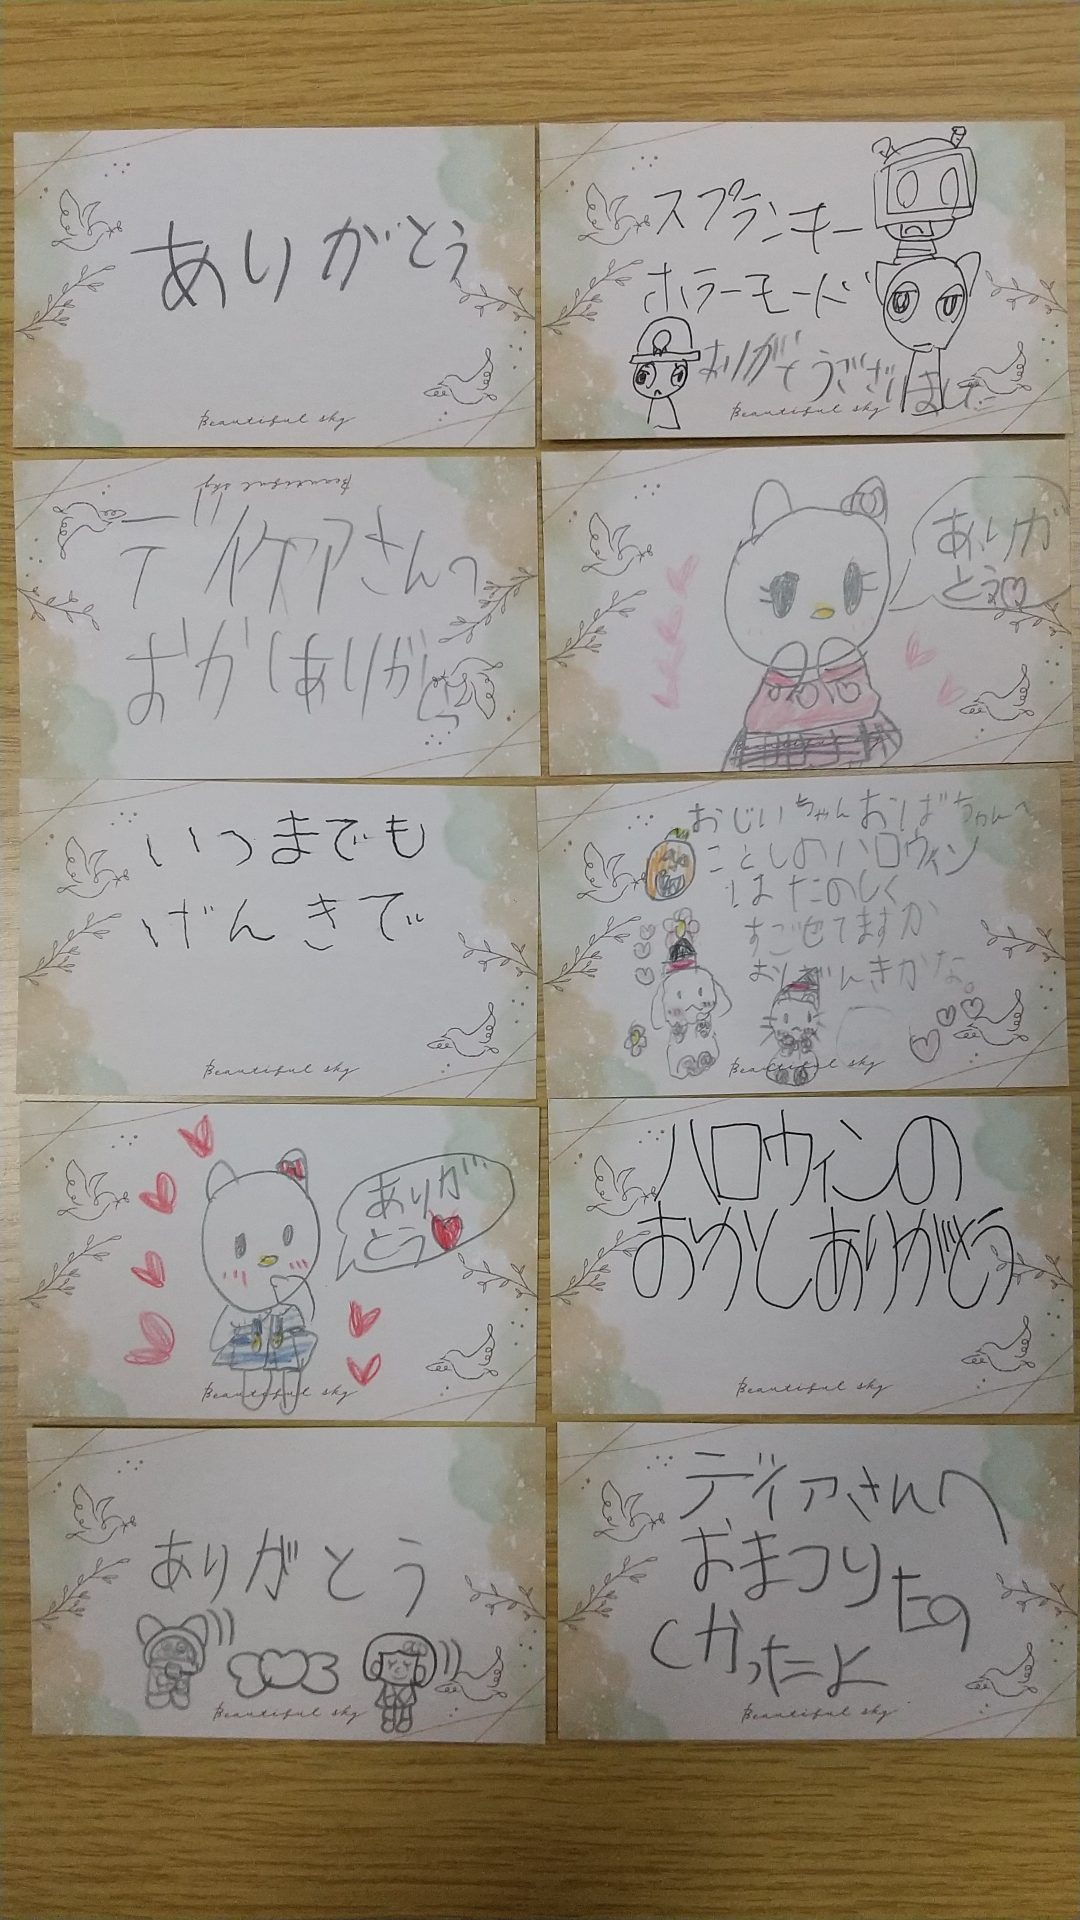 ありがとう
Beautiful sky
スプランキー
ホラーモード
ありがとうございました
Beautiful sky
Beautiful sky
デイケアさんへ
おかしありがとう
ありが
とう
いつまでも
げんきで
Beautiful sky
おじいちゃんおばちゃんへ
ことしのハロウィン
はたのしく
すごせてますか
おげんきかな。
Beautiful sky
ありが
とう
Beautiful sky
ハロウィンの
おかしありがとう
Beautiful sky
ありがとう
Beautiful sky
ディアさんへ
おまつりたの
しかったよ
Beautiful sky